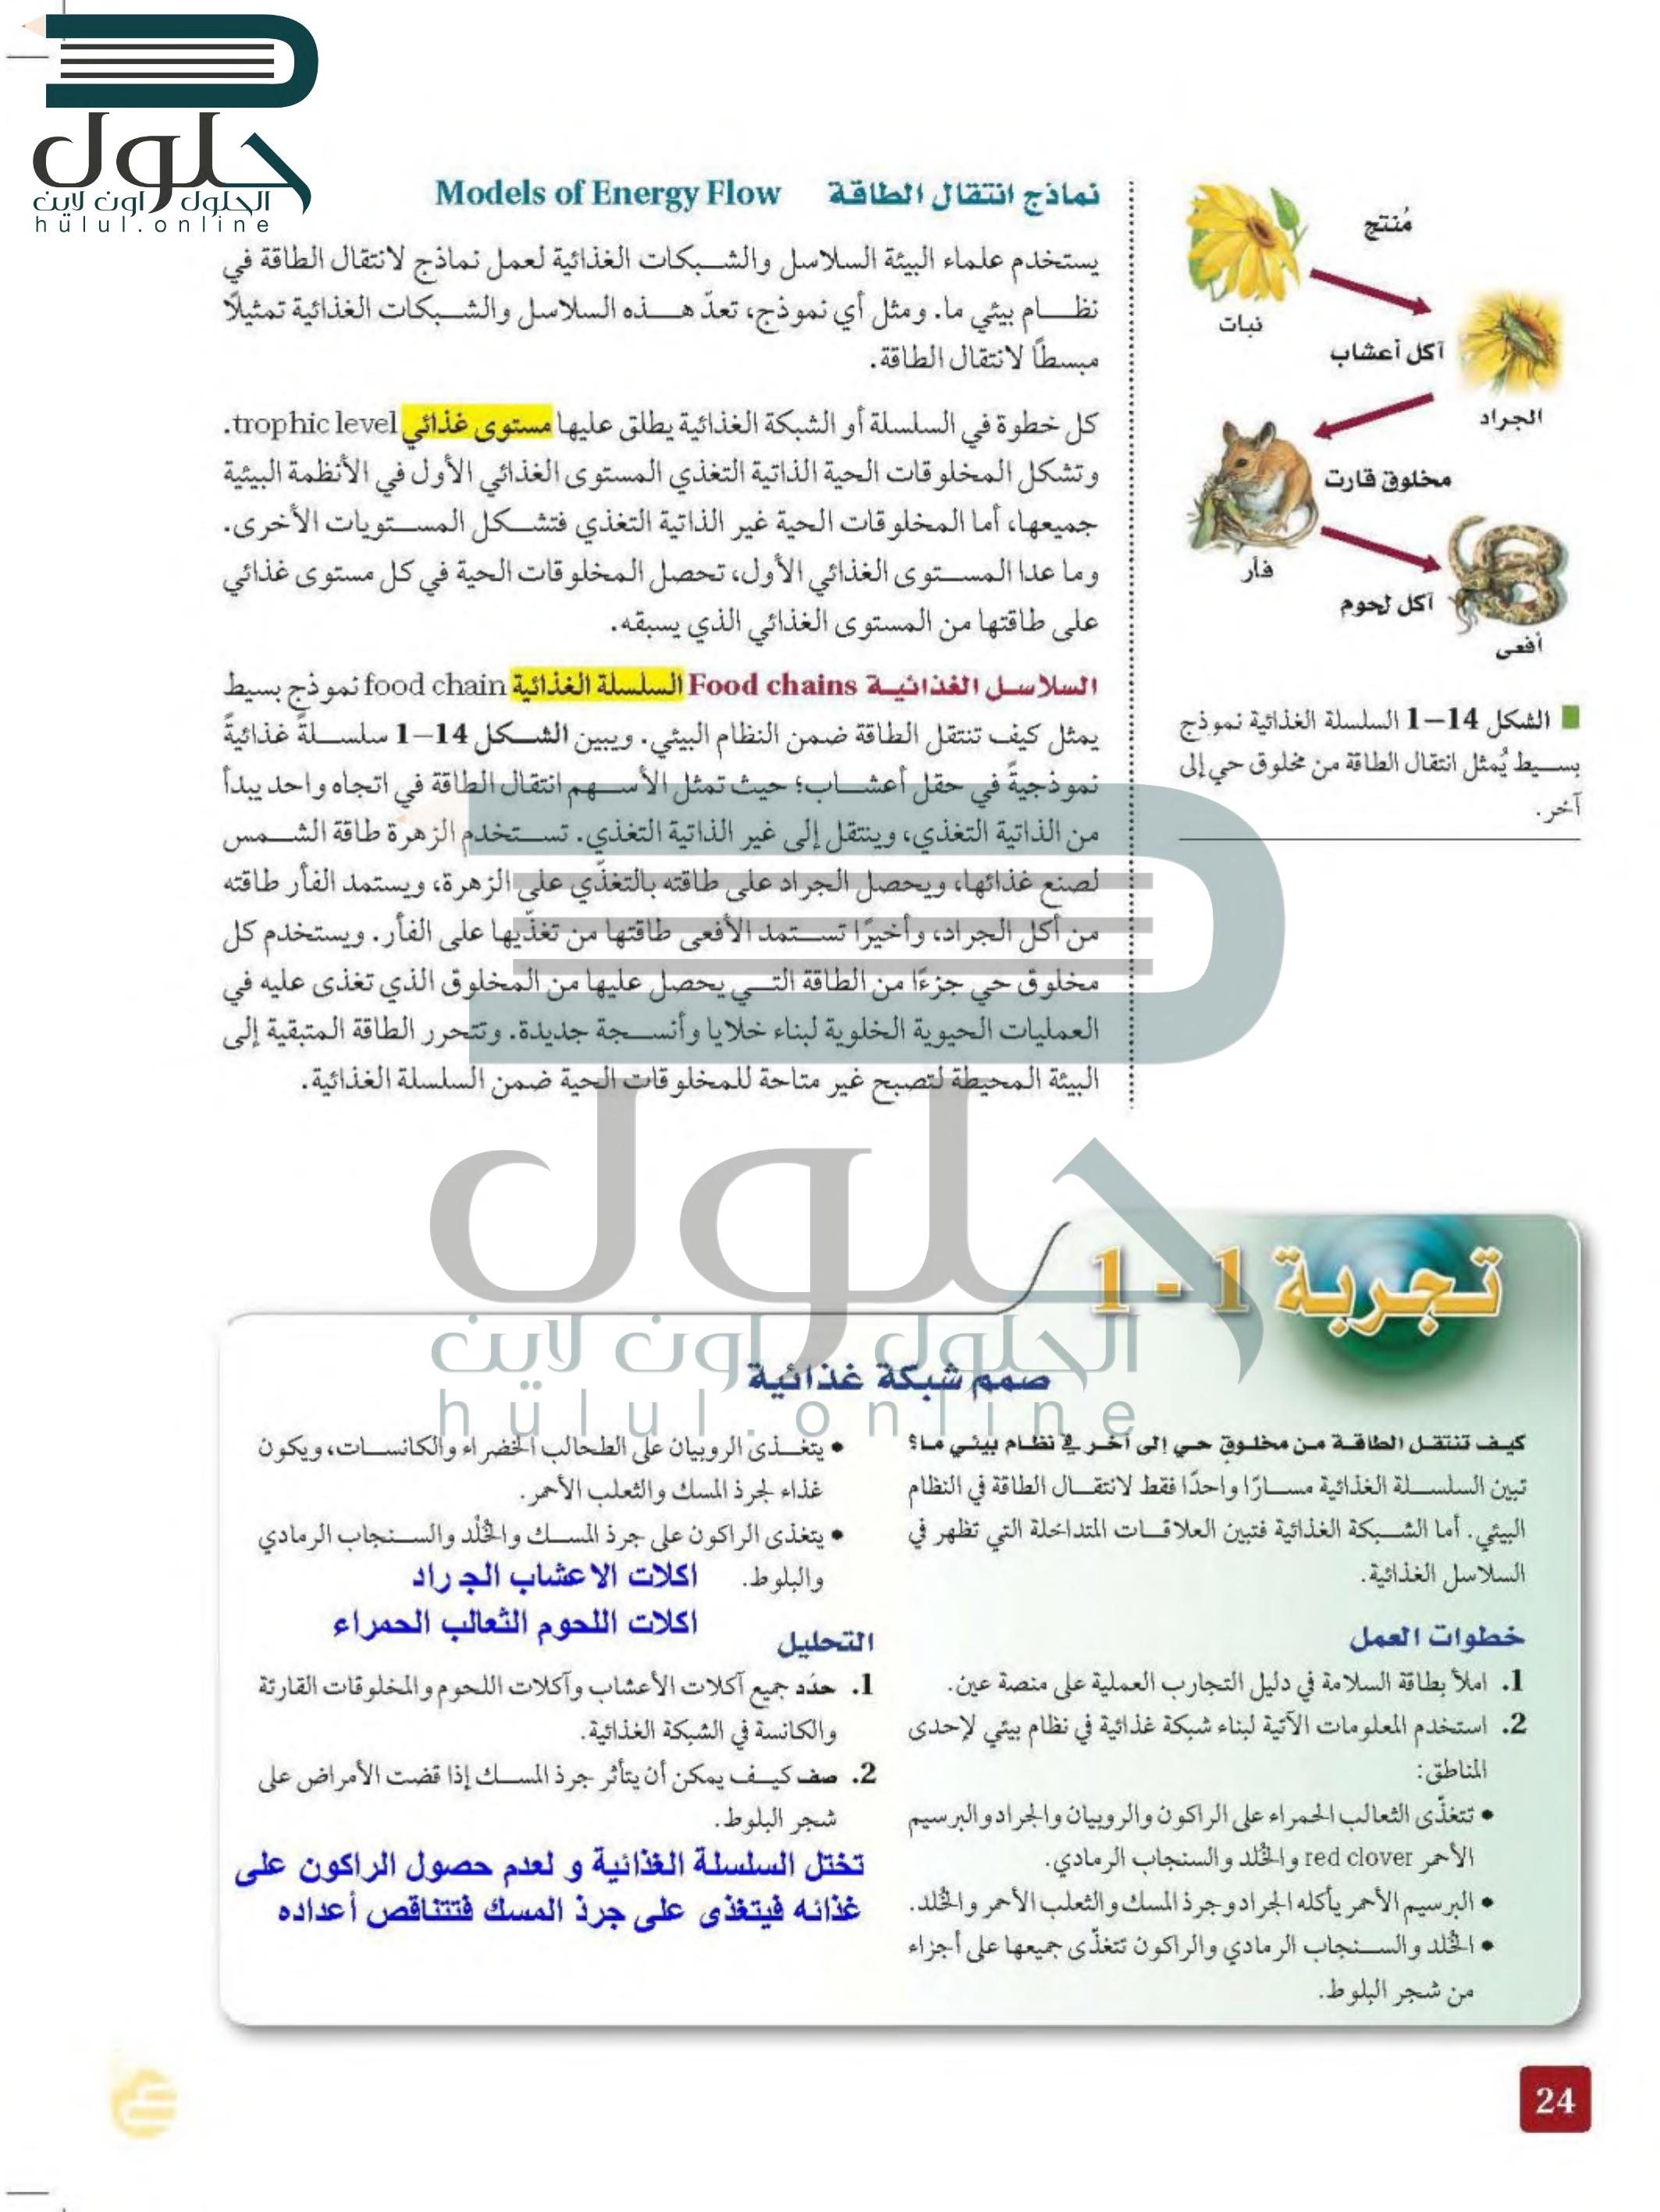 حلول
الحلول اون لاين
hülul.online
نماذج انتقال الطاقة Models of Energy Flow
يستخدم علماء البيئة السلاسل والشبكات الغذائية لعمل نماذج لانتقال الطاقة في
نظام بيئي ما. ومثل أي نموذج، تعدّ هذه السلاسل والشبكات الغذائية تمثيلًا
مبسطًا لانتقال الطاقة.
كل خطوة في السلسلة أو الشبكة الغذائية يطلق عليها مستوى غذائي trophic level.
وتشكل المخلوقات الحية الذاتية التغذي المستوى الغذائي الأول في الأنظمة البيئية
جميعها، أما المخلوقات الحية غير الذاتية التغذي فتشكل المستويات الأخرى.
وما عدا المستوى الغذائي الأول، تحصل المخلوقات الحية في كل مستوى غذائي
على طاقتها من المستوى الغذائي الذي يسبقه.
السلاسل الغذائية Food chains السلسلة الغذائية food chain نموذج بسيط
يمثل كيف تنتقل الطاقة ضمن النظام البيئي. ويبين الشكل 14–1 سلسلةً غذائيةً
نموذجيةً في حقل أعشاب؛ حيث تمثل الأسهم انتقال الطاقة في اتجاه واحد يبدأ
من الذاتية التغذي، وينتقل إلى غير الذاتية التغذي. تستخدم الزهرة طاقة الشمس
لصنع غذائها، ويحصل الجراد على طاقته بالتغذّي على الزهرة، ويستمد الفأر طاقته
من أكل الجراد، وأخيرًا تستمد الأفعى طاقتها من تغذّيها على الفأر. ويستخدم كل
مخلوق حي جزءًا من الطاقة التي يحصل عليها من المخلوق الذي تغذى عليه في
العمليات الحيوية الخلوية لبناء خلايا وأنسجة جديدة. وتتحرر الطاقة المتبقية إلى
البيئة المحيطة لتصبح غير متاحة للمخلوقات الحية ضمن السلسلة الغذائية.
مُنتج
نبات
آكل أعشاب
الجراد
مخلوق قارت
فأر
آكل لحوم
أفعى
الشكل 14–1 السلسلة الغذائية نموذج
بسيط يُمثل انتقال الطاقة من مخلوق حي إلى
آخر.
حلول
الحلول اون لاين
hülul.online
تجربة 1 - 1
صمم شبكة غذائية
كيف تنتقل الطاقة من مخلوق حي إلى آخر في نظام بيئي ما؟
تبين السلسلة الغذائية مسارًا واحدًا فقط لانتقال الطاقة في النظام
البيئي. أما الشبكة الغذائية فتبين العلاقات المتداخلة التي تظهر في
السلاسل الغذائية.
خطوات العمل
1. املأ بطاقة السلامة في دليل التجارب العملية على منصة عين.
2. استخدم المعلومات الآتية لبناء شبكة غذائية في نظام بيئي لإحدى
المناطق:
• تتغذّى الثعالب الحمراء على الراكون والروبيان والجراد والبرسيم
الأحمر red clover والخُلد والسنجاب الرمادي.
• البرسيم الأحمر يأكله الجراد وجرذ المسك والثعلب الأحمر والخُلد.
• الخُلد والسنجاب الرمادي والراكون تتغذّى جميعها على أجزاء
من شجر البلوط.
• يتغذى الروبيان على الطحالب الخضراء والكانسات، ويكون
غذاء لجرذ المسك والثعلب الأحمر.
• يتغذى الراكون على جرذ المسك والخُلْد والسنجاب الرمادي
والبلوط.
اكلات الاعشاب الجراد
اكلات اللحوم الثعالب الحمراء
التحليل
1. حدّد جميع آكلات الأعشاب وآكلات اللحوم والمخلوقات القارتة
والكانسة في الشبكة الغذائية.
2. صف كيف يمكن أن يتأثر جرذ المسك إذا قضت الأمراض على
شجر البلوط.
تختل السلسلة الغذائية و لعدم حصول الراكون على
غذائه فيتغذى على جرذ المسك فتتناقص أعداده
24